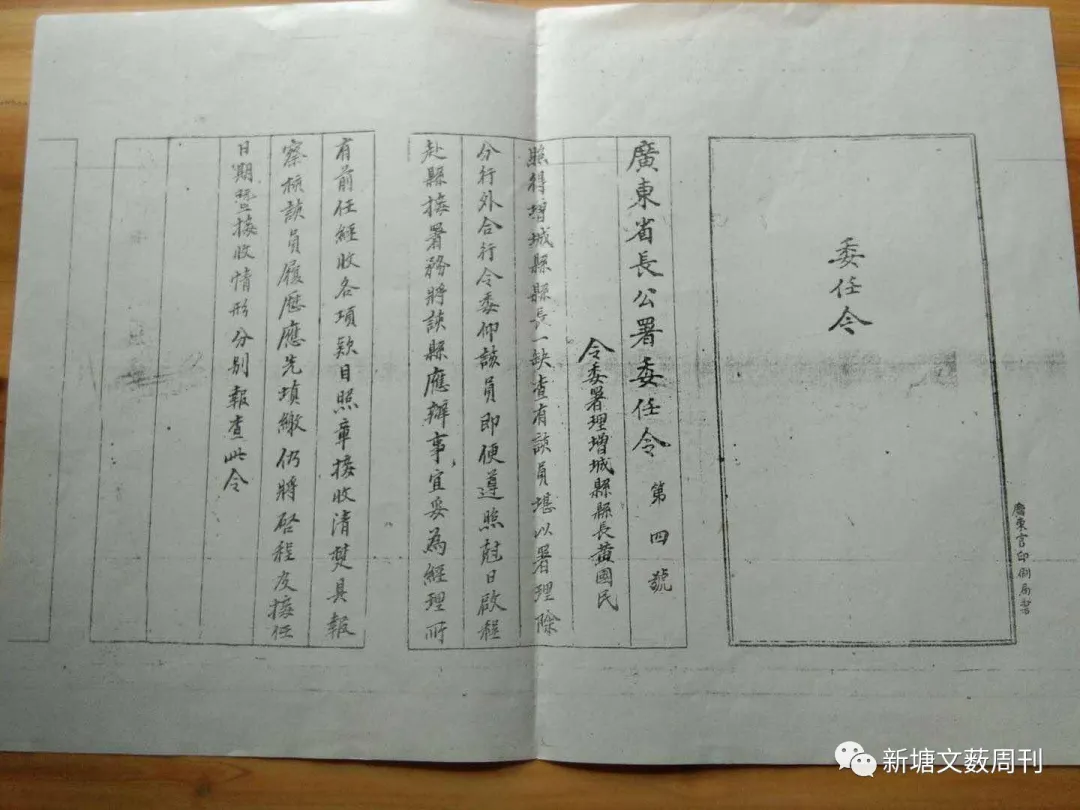 委任令
廣東官印刷局製
廣東省長公署委任令 第四號
令委署理增城縣縣長黃國民
照得增城縣縣長一缺查有該員堪以署理除
分行外合行令委仰該員即便遵照尅日啟程
赴縣接署務將該縣應辦事宜妥為經理所
有前任經收各項欵目照章接收清楚具報
察核該員履歷應先填繳仍將啓程及接任
日期暨接收情形分别報查此令
新塘文薮周刊